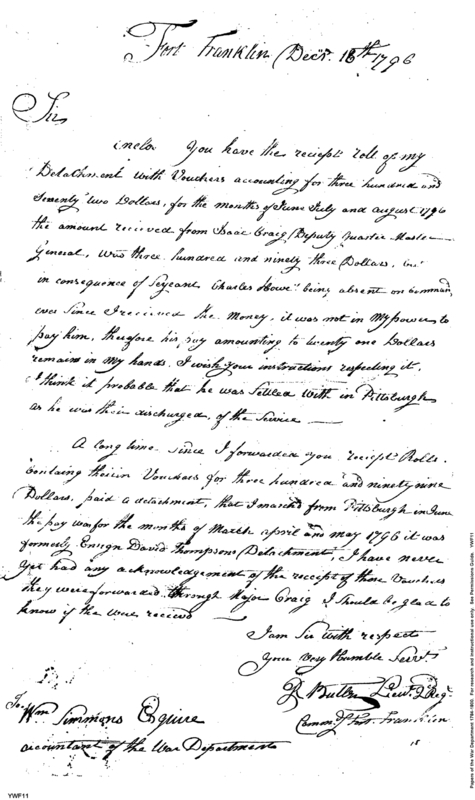 Fort Franklin Decr. 18th 1796
Sir
inclo You have the reciept roll of my
Detachment with Vouchers accounting for three hundred and
Seventy two Dollars, for the months of June July and august 1796
the amount received from Isaac Craig Deputy Quarter Master
General, was three hundred and ninety three Dollars, but
in consequence of Serjeant Charles Howe being absent on command
ever since I received the money, it was not in my power to
pay him, therefore his pay amounting to twenty one Dollars
remains in my hands. I wish your instructions respecting it,
I think it probable that he was settled with in Pittsburgh
as he was their discharged, of the Service
A long time since I forwarded you reciept Rolls
Containg therein Vouchers for three hundred and ninety nine
Dollars, paid a detachment, that I march'd from Pittsburgh in June
the pay was for the months of March april and may 1796 it was
formerly Ensign David Thompsons Detachment, I have never
yet had any acknowledgement of the receipt of those Vouchers
they were forwarded through Major Craig I should be glad to
know if the were received
I am Sir with respect
your very Humble Servt.
Butler Lieut. 2d Regt.
Commdg Fort Franklin
To
Wm Simmons Esquire
accountant of the War Department
15
YWF11
Papers of the War Department 1784-1800. For research and instructional use only. See Permissions Guide. YWF11